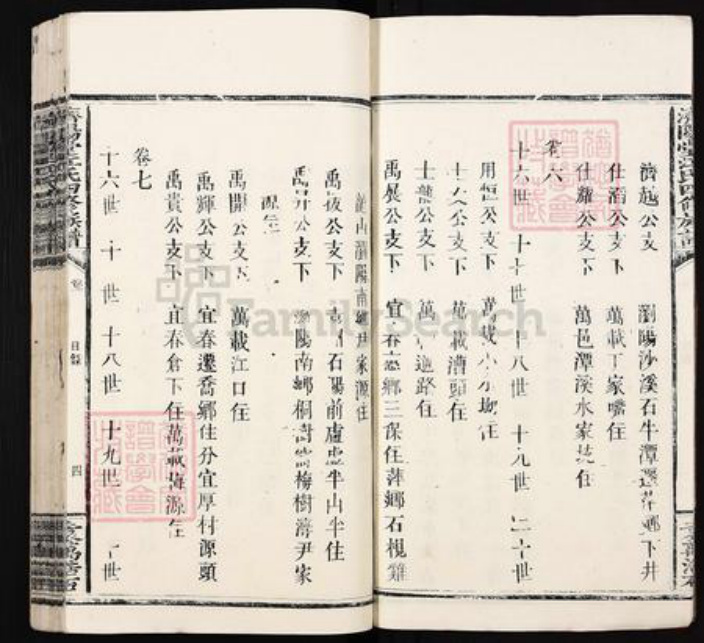 濟越公支 瀏陽沙溪石牛潭遷萍鄉下井
仕涌公支下 萬載丁家嘴住
仕耀公支下 萬邑潭溪水家住
卷六
十六世 十七世 十八世 十九世 二十世
用恒公支下 萬載小水坳住
公支下 萬載漕頭住
士龍公支下 萬路住
禹展公支下 宜春鄉三保住萍鄉石梘雞
瀏陽南鄉尹家源住
禹拔公支下 石陽前盧處半山半住
禹昇公支下 瀏陽南鄉桐樹梅樹海尹家
源住
禹開公支下 萬載江口住
禹輝公支下 宜春遷喬鄉住分宜厚村源頭
禹貴公支下 宜春倉下住萬載海源住
卷七
十六世 十七世 十八世 十九世 二十世
濟陽堂江氏四修族譜
卷
目錄
四
FamilySearch